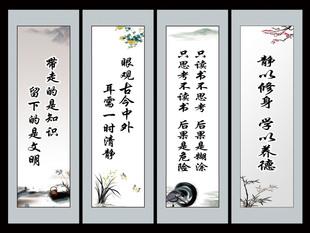 带走的是知识
留下的是文明
眼观古今中外
耳需一时清静
只读书不思考 后果是糊涂
只思考不读书 后果是危险
静以修身 学以养德